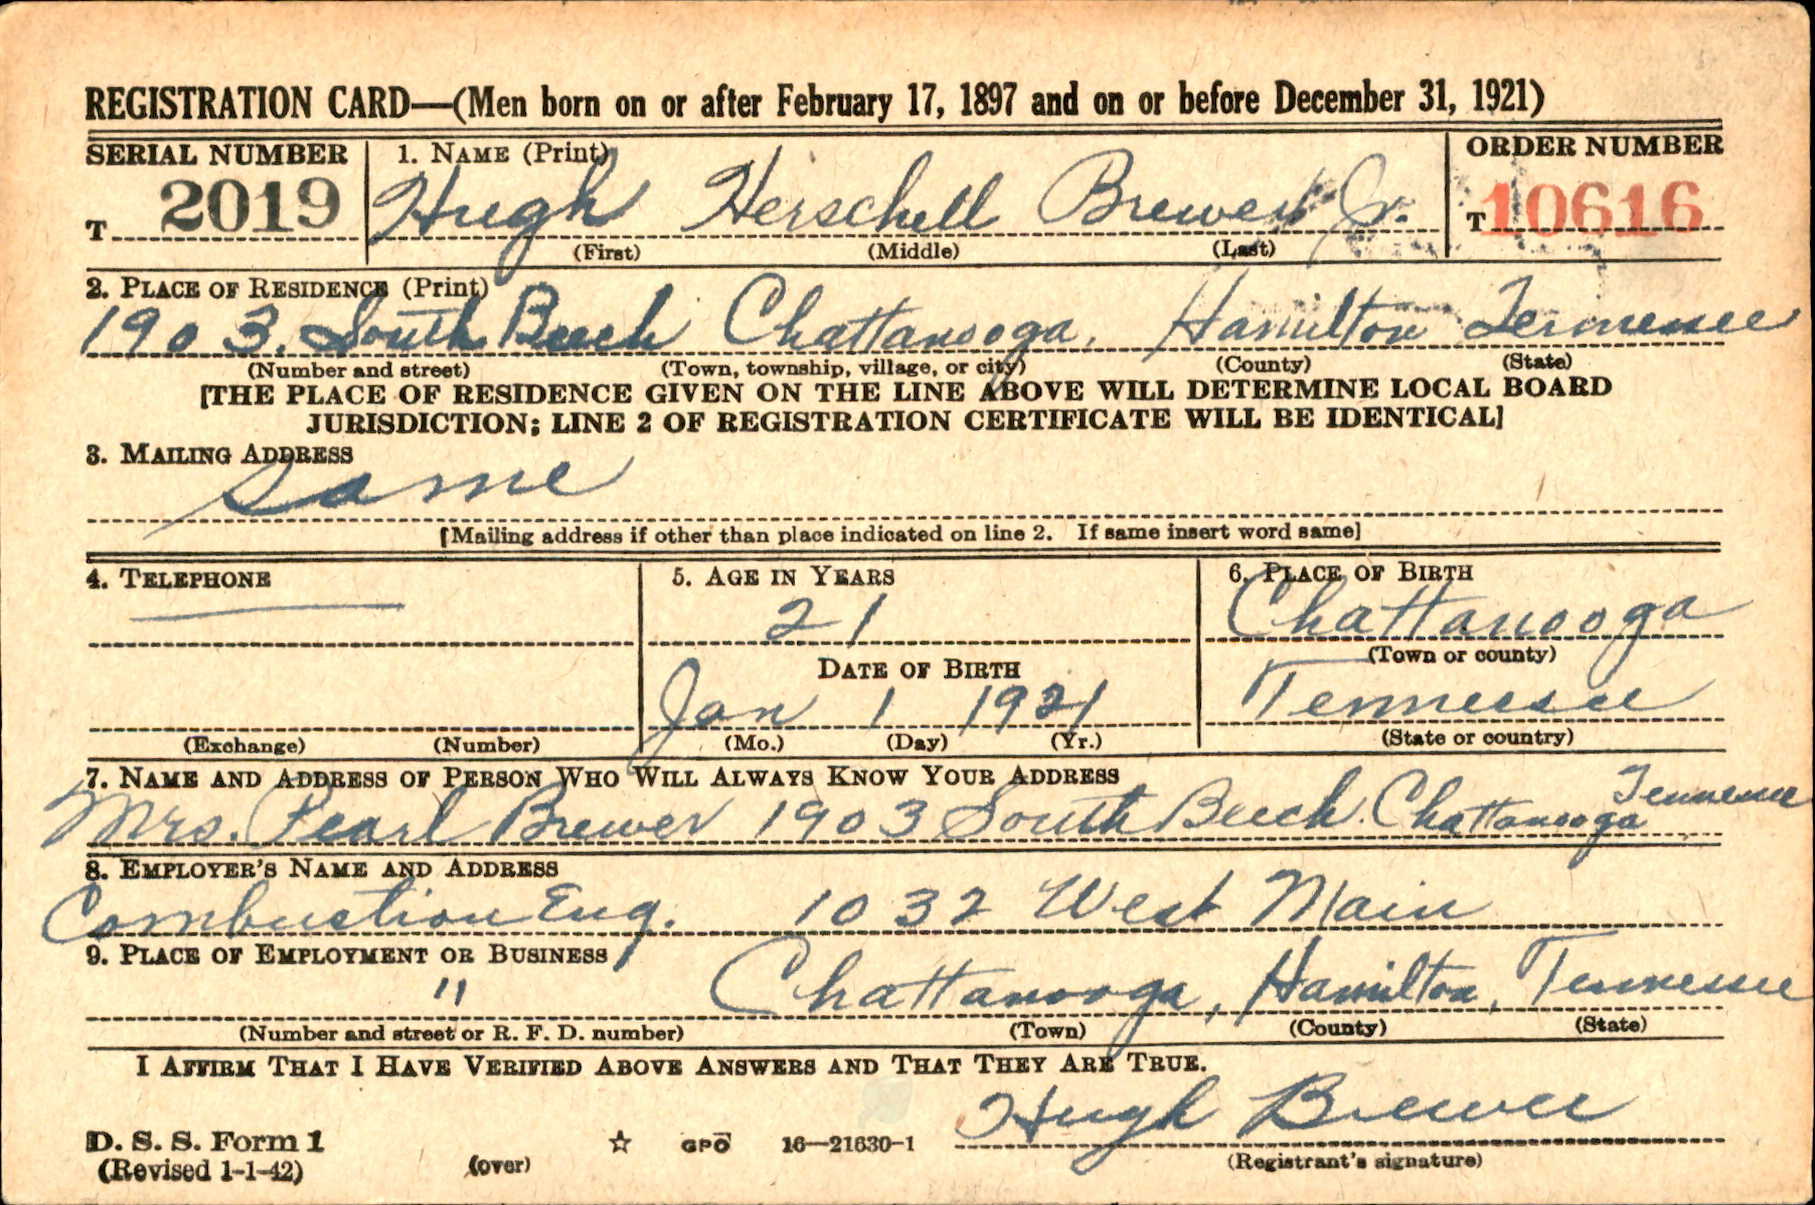 REGISTRATION CARD—(Men born on or after February 17, 1897 and on or before December 31, 1921)
SERIAL NUMBER 1. NAME (Print) ORDER NUMBER
T 2019 Hugh Herschell Brewer Jr. T 10616
(First) (Middle) (Last)
2. PLACE OF RESIDENCE (Print)
1903. South Beech Chattanooga, Hamilton Tennessee
(Number and street) (Town, township, village, or city) (County) (State)
[THE PLACE OF RESIDENCE GIVEN ON THE LINE ABOVE WILL DETERMINE LOCAL BOARD
JURISDICTION; LINE 2 OF REGISTRATION CERTIFICATE WILL BE IDENTICAL]
3. MAILING ADDRESS
Same
[Mailing address if other than place indicated on line 2. If same insert word same]
4. TELEPHONE 5. AGE IN YEARS 6. PLACE OF BIRTH
21 Chattanooga
(Town or county)
DATE OF BIRTH
Jan 1 1921 Tennessee
(Exchange) (Number) (Mo.) (Day) (Yr.) (State or country)
7. NAME AND ADDRESS OF PERSON WHO WILL ALWAYS KNOW YOUR ADDRESS
Mrs. Pearl Brewer 1903 South Beech. Chattanooga Tennessee
8. EMPLOYER'S NAME AND ADDRESS
Combustion Eng. 1032 West Main
9. PLACE OF EMPLOYMENT OR BUSINESS
" Chattanooga, Hamilton, Tennessee
(Number and street or R. F. D. number) (Town) (County) (State)
I AFFIRM THAT I HAVE VERIFIED ABOVE ANSWERS AND THAT THEY ARE TRUE.
Hugh Brewer
D. S. S. Form 1 ☆ GPO 16—21630-1
(Revised 1-1-42) (over) (Registrant's signature)